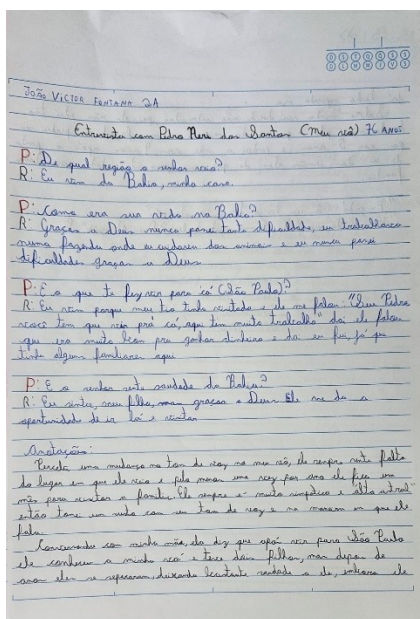 João Victor Fontana 2A
Entrevista com Pedro Neri dos Santos (Meu vô) 76 anos
P: De qual região o senhor veio?
R: Eu vim da Bahia, minha cara.
P: Como era sua vida na Bahia?
R: Graças a Deus nunca passei tanta dificuldade, eu trabalhava
numa fazenda onde eu cuidava dos animais e eu nunca passei
dificuldades graças a Deus
P: E o que te fez vir para cá (São Paulo)?
R: Eu vim porque meu tio tinha visitado e ele me falou: "Seu Pedro
você tem que vir pra cá, aqui tem muito trabalho" daí ele falou
que era muito bom pra ganhar dinheiro e daí eu fui, já que
tinha alguns familiares aqui
P: E o senhor sente saudade da Bahia?
R: Eu sinto, meu filho, mas graças a Deus Ele me da a
oportunidade de ir lá e visitar
Anotações:
Percebi uma mudança no tom de voz no meu vô, ele sempre sente falta
do lugar em que ele veio e pelo menos uma vez por ano ele fica um
mês para visitar a família. Ele sempre é muito simpático e "alto astral"
então tomei um susto com seu tom de voz e na maneira em que ele
falou.
Conversando com minha mãe, ela diz que após vir para São Paulo
ele conheceu a minha vó e teve dois filhos, mas depois de
anos eles se separaram, deixando bastante saudade a ele, embora ele